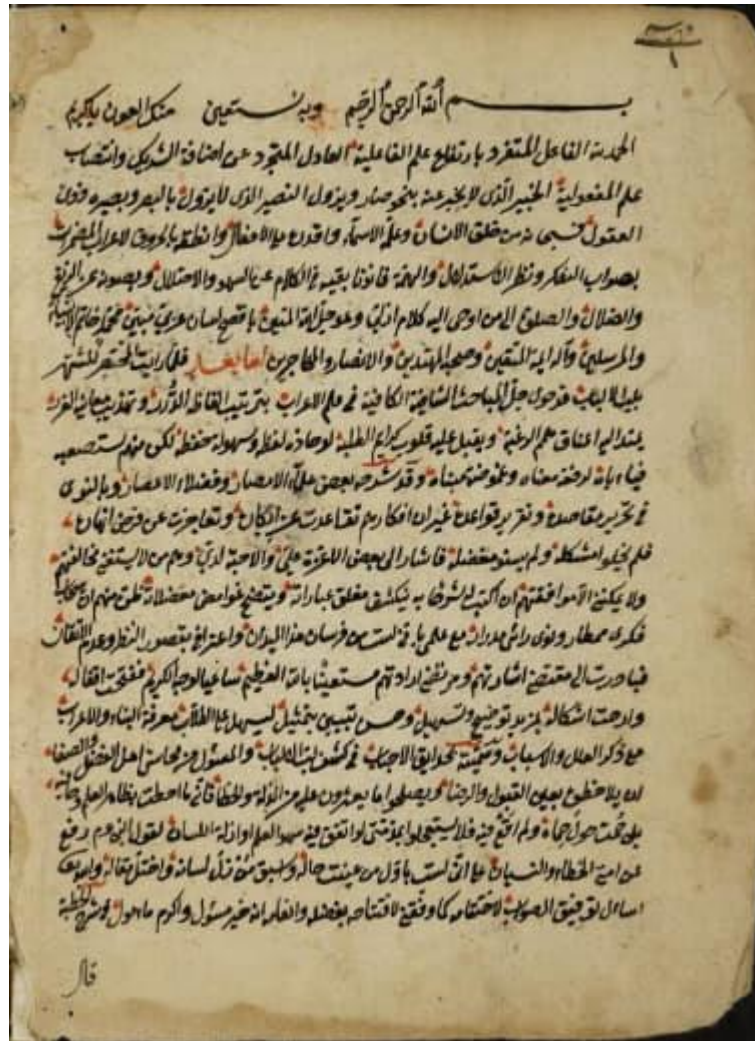 بسم الله الرحمن الرحيم وبه نستعين منك العون يا كريم
الحمد لله الفاعل المتفرد بارتفاع علم الفاعلية العادل المتجرد عن اضافة الشريك وانتصاب
علم المفعولية الخبير الذي لا يخبر عنه بنحو صار ويزول النصير الذي لا يزول بالبصر وبصيره فون
العقول من خلق الانسان وعلم الاسماء واقدره على الافعال وانطقه بالحروف لاعراب المضمرات
بصواب التفكر ونظر الاستدلال والهمه قانونا يقيه في الكلام عن السهو والاختلال ويصونه عن الزيغ
والضلال والصلوة على من اوحى اليه كلام بافصح لسان عربي مبين محمد خاتم الانبياء
والمرسلين وآله ائمة المتقين وصحبه المهتدين والانصار والمهاجرين اما بعد فلما رايت المختصر المشتهر
بلب الالباب قد حوى جل المباحث الكافية في علم الاعراب بترتيب الفاظ الدرر وتهذيب معاني الغرر
يمتد اليه اعناق همم الرغبة ويقبل عليه قلوب الطلبة لوجازة لفظه وسهولة حفظه لكن منهم يستصعبه
لرفعة معناه وغموضة مبناه وقد شرحه بعض علماء الامصار وفضلاء الاعصار وبالغوا
في تحرير مقاصده وتقرير قواعده غير ان افكارهم تقاعدت عن وتعاجزت عن
فلم يخلوا مشكله ولم يبينو معضله فاشار الي بعض الاعزة علي والاحبة لدي وهم من لا يسعني مخالفتهم
ولا يمكنني الا موافقتهم ان اكتب له شرحا به ينكشف مغلق عباراته ويتضح غوامض معضلاته ظن منهم ان سحاب
فكري ممطار مدرار مع علمي باني لست من فرسان هذا الميدان واعترافي بقصور النظر وعدم الاتقان
فبادرت الى مقتضى اشارتهم ومرتضى ارادتهم مستعينا بالله العظيم ساعيا لوجه الكريم ففتحت اقفاله
وازحت اشكاله بمزيد توضيح وتسهيل وحسن تبيين بتمثيل ليسهل على الطلاب معرفة البناء والاعراب
مع ذكر العلل والاسباب وسميته بحدايق الاحباب في كشف لب الالباب والمسئول من محاسن اهل الفضل والصفا
ان يلاحظوه بعين القبول والرضا ويصلحوا ما يعثرون عليه من الزلة والخطا فاني ما احطت بظاهر العلم وخافيه
بل حمت حول حماه ولم اقع فيه فلا يستعجلوا بمؤاخذتي لو اتفق فيه سهو القلم او ازلة اللسان لقول النبي عم رفع
عن امتي الخطاء والنسيان على اني لست باول من حاله وليس من زل لسانه واختل مقاله
اسال توفيق الصواب لاختتامه كما وفقني لافتتاحه بفضله وانعامه انه خير مسئول واكرم مامول شرح الخطبة
قال